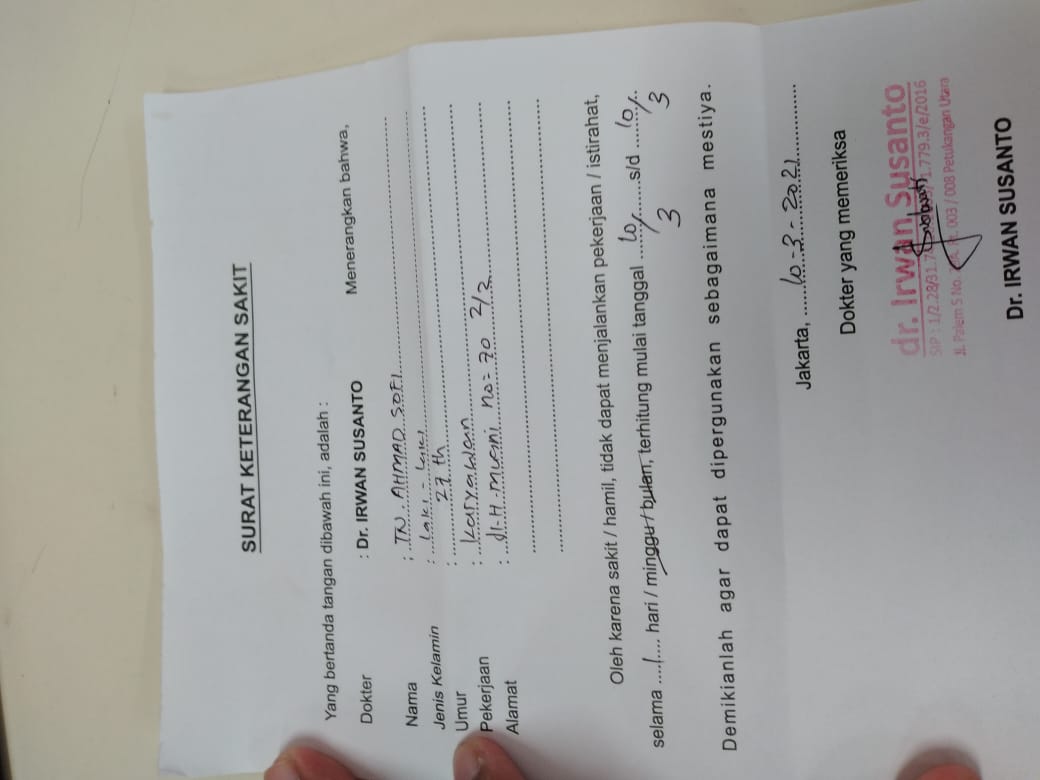 SURAT KETERANGAN SAKIT
Yang bertanda tangan dibawah ini, adalah :
Dokter : Dr. IRWAN SUSANTO Menerangkan bahwa,
Nama : TN. AHMAD SOFI
Jenis Kelamin : Laki - Laki
Umur : 27 th
Pekerjaan : Karyawan
Alamat : Jl. H. Murni no = 70 2/2
Oleh karena sakit / hamil, tidak dapat menjalankan pekerjaan / istirahat,
selama ....1.... hari / minggu / bulan, terhitung mulai tanggal ....10/3.... s/d ....10/3....
Demikianlah agar dapat dipergunakan sebagaimana mestiya.
Jakarta, ....10 - 3 - 2021....
Dokter yang memeriksa
dr. Irwan Susanto
SIP : 1/2.28/31.7 1.779.3/e/2016
Jl. Palem 5 No. 003 / 008 Petukangan Utara
Dr. IRWAN SUSANTO